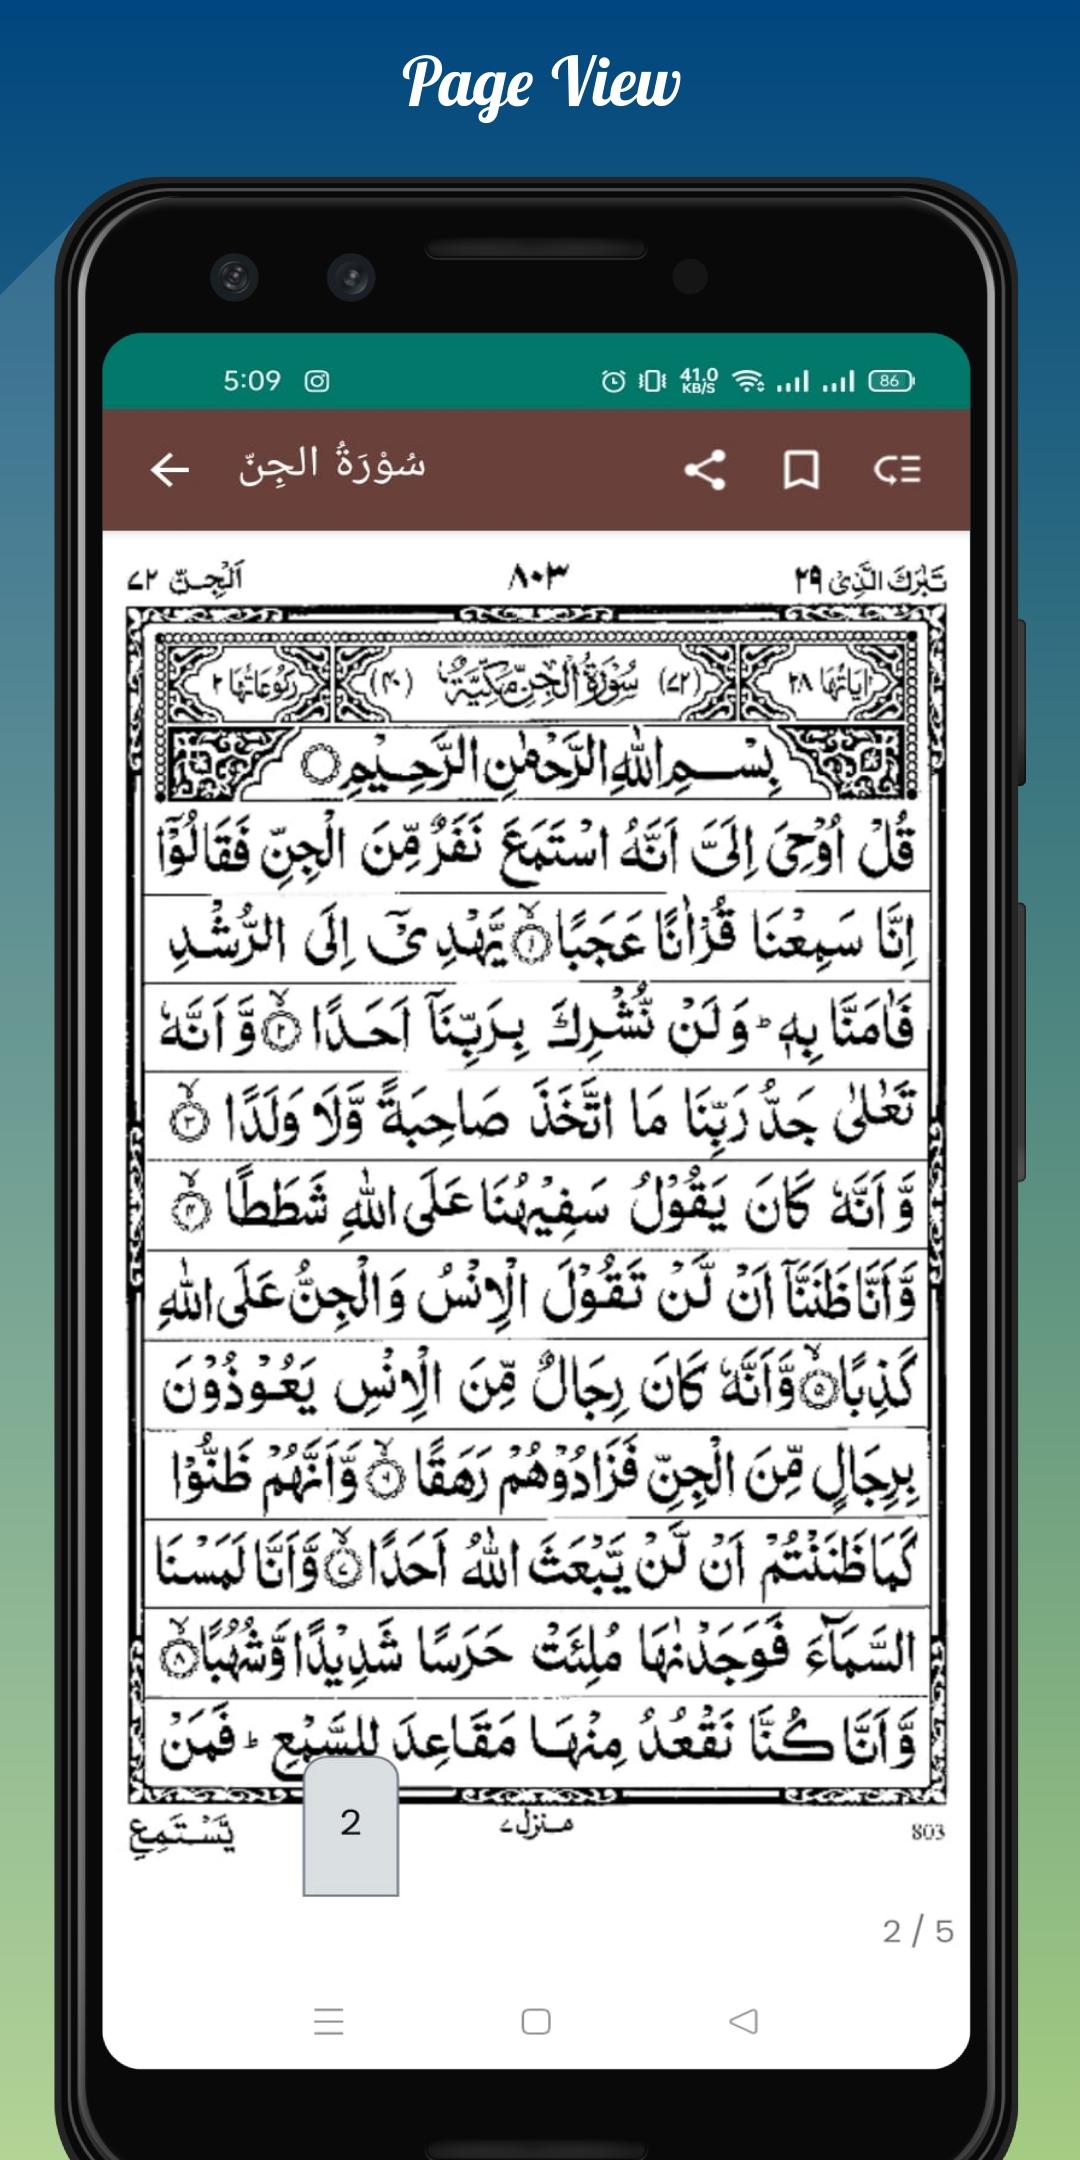 Page View
5:09
41.0
KB/S
86
سُوْرَةُ الجِنّ
تَبٰرَكَ الَّذِىْ ٢٩
٨٠٣
اَلْجِنّ ٧٢
اٰيَاتُهَا ٢٨
(٧٢) سُوْرَةُ الْجِنِّ مَكِّيَّةٌ (٤٠)
رُكُوْعَاتُهَا ٢
بِسْمِ اللّٰهِ الرَّحْمٰنِ الرَّحِيْمِ
قُلْ اُوْحِىَ اِلَىَّ اَنَّهُ اسْتَمَعَ نَفَرٌ مِّنَ الْجِنِّ فَقَالُوْٓا
اِنَّا سَمِعْنَا قُرْاٰنًا عَجَبًا ١ يَّهْدِىْٓ اِلَى الرُّشْدِ
فَاٰمَنَّا بِهٖ ؕ وَلَنْ نُّشْرِكَ بِرَبِّنَآ اَحَدًا ٢ وَّاَنَّهٗ
تَعٰلٰى جَدُّ رَبِّنَا مَا اتَّخَذَ صَاحِبَةً وَّلَا وَلَدًا ٣
وَّاَنَّهٗ كَانَ يَقُوْلُ سَفِيْهُنَا عَلَى اللّٰهِ شَطَطًا ٤
وَّاَنَّا ظَنَنَّآ اَنْ لَّنْ تَقُوْلَ الْاِنْسُ وَالْجِنُّ عَلَى اللّٰهِ
كَذِبًا ٥ وَّاَنَّهٗ كَانَ رِجَالٌ مِّنَ الْاِنْسِ يَعُوْذُوْنَ
بِرِجَالٍ مِّنَ الْجِنِّ فَزَادُوْهُمْ رَهَقًا ٦ وَّاَنَّهُمْ ظَنُّوْا
كَمَا ظَنَنْتُمْ اَنْ لَّنْ يَّبْعَثَ اللّٰهُ اَحَدًا ٧ وَّاَنَّا لَمَسْنَا
السَّمَآءَ فَوَجَدْنٰهَا مُلِئَتْ حَرَسًا شَدِيْدًا وَّشُهُبًا ٨
وَّاَنَّا كُنَّا نَقْعُدُ مِنْهَا مَقَاعِدَ لِلسَّمْعِ ؕ فَمَنْ
803
منزل ٧
يَّسْتَمِعِ
2
2 / 5